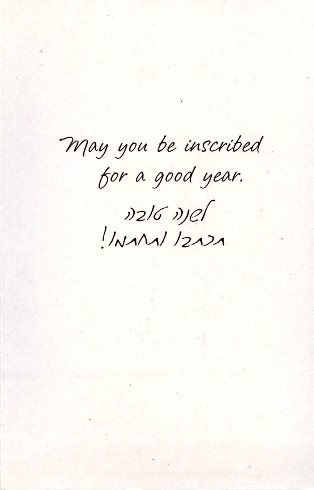 May you be inscribed
for a good year.
לשנה טובה
תכתבו ותחתמו!